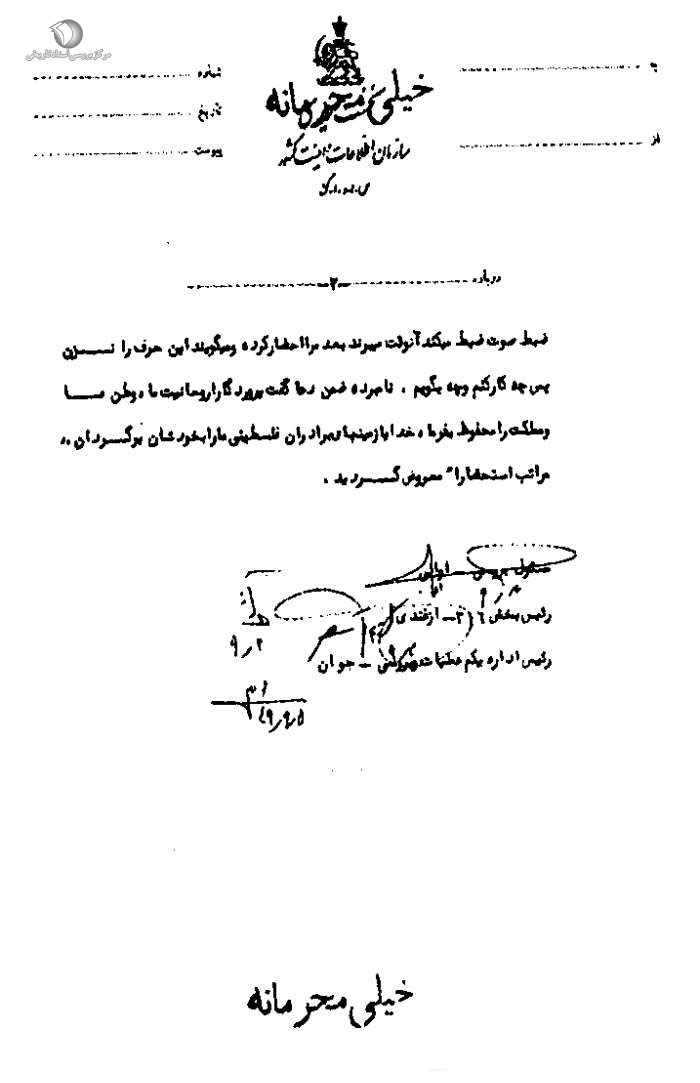 مرکز بررسی اسناد تاریخی
خیلی محرمانه
نخست وزیری
سازمان اطلاعات و امنیت کشور
س.ا.و.ا.ک
به
از
شماره
تاریخ
پیوست
درباره -۲-
ضبط صوت ضبط میکند آنوقت میبرند بعد مرا احضار کرده و میگویند این حرف را نزن
پس چه کار کنم و چه بگویم . نامبرده ضمن دعا گفت پروردگارا روحانیت ما و وطن ما
و مملکت را محفوظ بفرما ، خدایا زمینهای برادران فلسطینی ما را بخودشان برگردان ..
مراتب استحضاراً معروض گردید .
مسئول بررسی -
رئیس بخش ۳۱۶ - ازغندی
رئیس اداره یکم عملیات و بررسی - جوان
۴۹٫۹٫۵
خیلی محرمانه